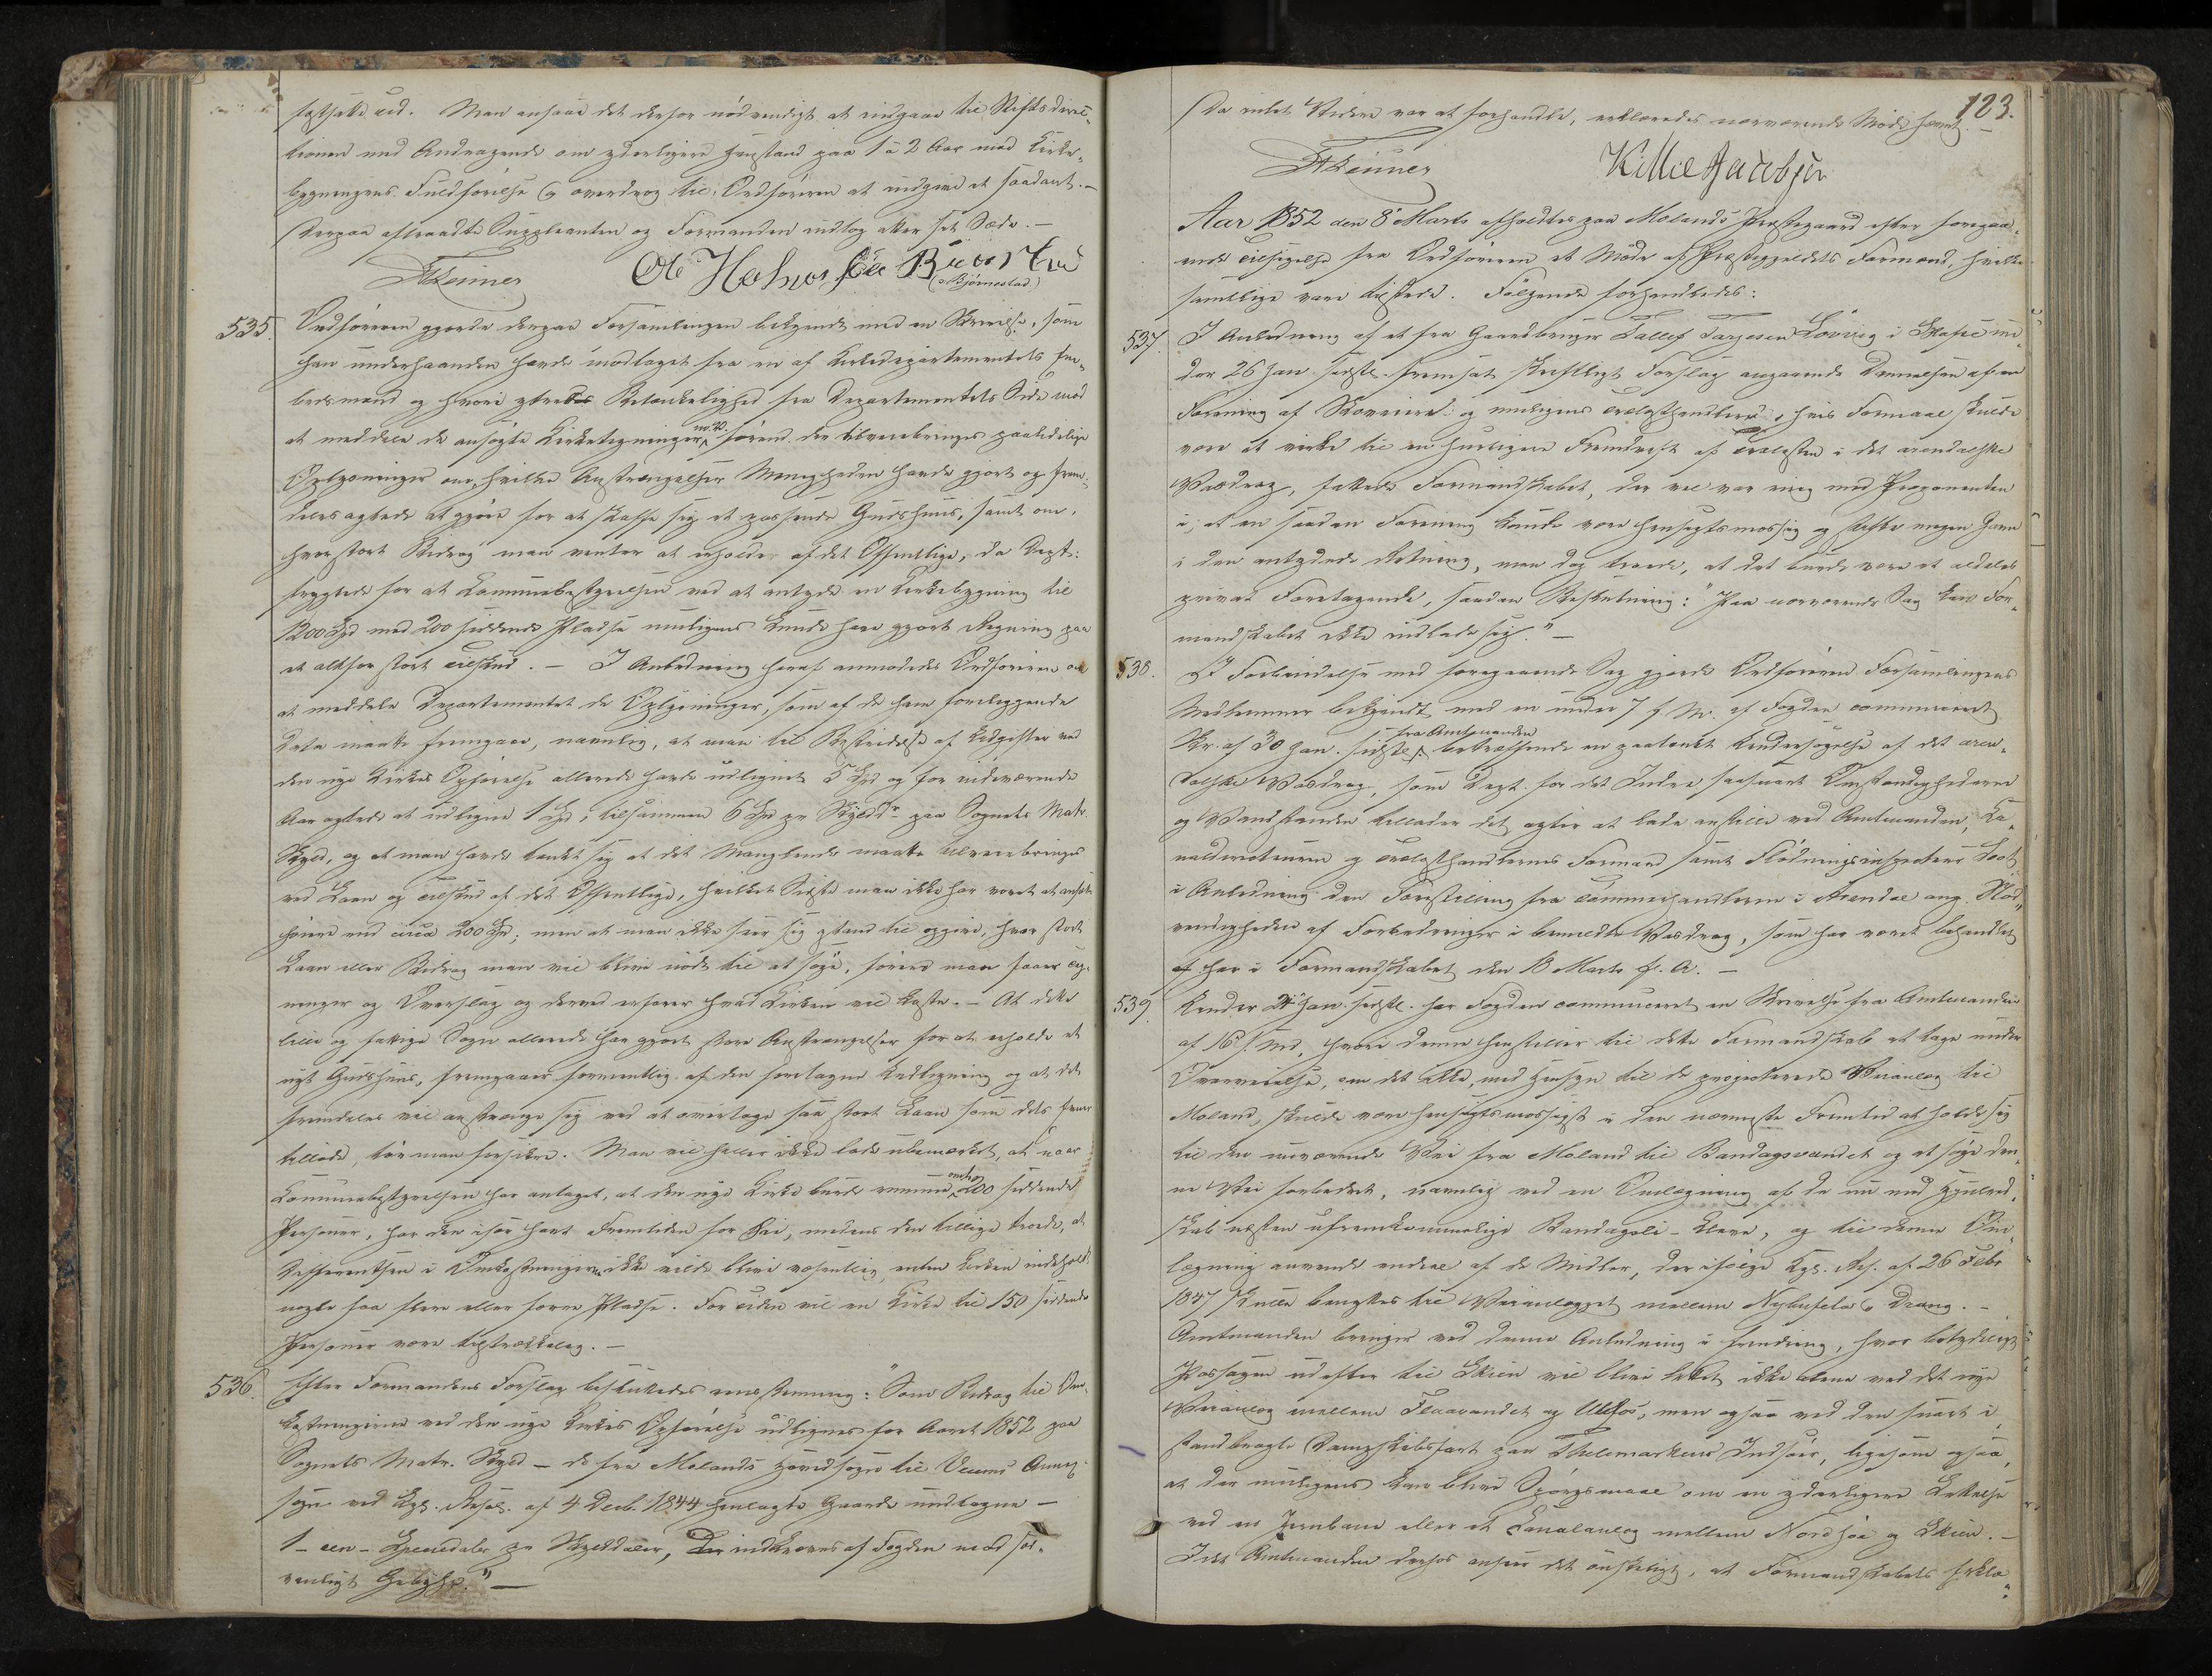 fastsatte Tid. Man ansaae det derfor nødvendigt at indgaae til Stiftsdirec-
tionen med Andragende om yderligere Henstand paa 1 à 2 Aar med Kirke-
bygningens Fuldførelse & overdrog til Ordføreren at indgive et saadant. —
Derpaa aftraadte Suppleanten og Formanden indtog atter sit Sæde. —
(Bjørnestad)
535. Ordføreren gjorde derpaa Forsamlingen bekjendt med en Skrivelse, som
han underhaanden havde modtaget fra en af Kirkedepartementets Em-
bedsmænd og hvori ytredes Betænkelighed fra Departementets Side mod
at meddele de ansøgte Kirketegninger m.V. førend der tilveiebringes paalidelige
Oplysninger om, hvilke Anstrængelser Menigheden havde gjort og frem-
deles agtede at gjøre for at skaffe sig et passende Gudshuus, samt om,
hvor stort Bidrag man venter at erholde af det Offentlige, da Dept:
frygtede for at Communebestyrelsen ved at antyde en Kirkebygning til
1200 Spd med 200 siddende Pladse muligens kunde have gjort Regning paa
et altfor stort Tilskud. — I Anledning heraf anmodedes Ordføreren om
at meddele Departementet de Oplysninger, som af de ham foreliggende
Data maatte fremgaae, navnlig, at man til Bestridelse af Udgifter ved
den nye Kirkes Opførelse allerede havde udlignet 5 Spd og for indeværende
Aar agtede at udligne 1 Spd, tilsammen 6 Spd pr Skylddr paa Sognets Matr.
Skyld, og at man havde tænkt sig at det Manglende maatte tilveiebringes
ved Laan og Tilskud af det Offentlige, hvilket Sidste man ikke har vovet at ansætte
høiere end circa 200 Spd; men at man ikke seer sig istand til opgive, hvor stort
Laan eller Bidrag man vil blive nødt til at søge, førend man faaer Teg-
ninger og Overslag og derved erfarer hvad Kirken vil koste. — At dette
lille og fattige Sogn allerede har gjort store Anstrængelser for at erholde et
nyt Gudshuus, fremgaaer formentlig af den foretagne Udligning og at det
fremdeles vil anstrænge sig ved at overtage saa stort Laan som dets Evner
tillade, tør man forsikre. Man vil heller ikke lade ubemærket, at naar
Communebestyrelsen har antaget, at den nye Kirke burde rumme omtr. 200 siddende
Personer, har den især havt Fremtiden for Øie, medens den tillige troede, at
Differentsen i Omkostningerne ikke vilde blive væsentlig, enten Kirken indeholdt
nogle faa flere eller færre Pladse. For Tiden vil en Kirke til 150 siddende
Personer være tilstrækkelig. —
536. Efter Formandens Forslag besluttedes eenstemmig: "Som Bidrag til Om-
kostningerne ved den nye Kirkes Opførelse udlignes for Aaret 1852 paa
Sognets Matr. Skyld — de fra Molands Hovedsogn til Veums Annex-
sogn ved Kgl. Resol. af 4 Decb. 1844 henlagte Gaarde undtagne —
1 — een — Speciedaler pr Skylddaler, der indkræves af Fogden mod sæd-
vanligt Gebyhr." —
123.
Da intet Videre var at forhandle, erklæredes nærværende Møde hævet. —
Aar 1852 den 8de Marts afholdtes paa Molands Præstegaard efter foregaa-
ende Tilsigelse fra Ordføreren et Møde af Præstegjeldets Formænd, hvilke
samtlige vare tilstede. Følgende forhandledes:
537. I Anledning af et fra Gaardbruger Tallef Tarjesen Løvvig i
der 26 Jan. sidstl. fremsat skriftligt Forslag angaaende Dannelsen af en
Forening af Skoveiere og muligens Trælasthandlere, hvis Formaal skulde
være at virke til en hurtigere Fremdrift af Trælasten i det arendalske
Vasdrag, fattede Formandskabet, der vel var enig med Proponenten
i, at en saadan Forening kunde være hensigtsmæssig og stifte megen Gavn
i den antydede Retning, men dog troede, at det burde være et aldeles
privat Foretagende, saadan Beslutning: "Paa nærværende Sag kan For-
mandskabet ikke indlade sig." —
538. I Forbindelse med foregaaende Sag gjorde Ordføreren Forsamlingens
Medlemmer bekjendt med en under 7 f. M. af Fogden communiceret
Skr. af 30 Jan. sidstl. fra Amtmanden betræffende en paatænkt Undersøgelse af det aren-
dalske Vasdrag, som Dept. for det Indre, saasnart Omstændighederne
og Vandstanden tillader det, agter at lade anstille ved Amtmanden, Ca-
naldirecteuren og Trælasthandlernes Formand samt Flødningsinspecteur Foot
i Anledning den Forestilling fra Tømmerhandlerne i Arendal ang. Nød-
vendigheden af Forbedringer i bemeldte Vasdrag, som har været behandlet
her i Formandskabet den 18 Marts f. A. —
539. Under 24 Jan. sidstl. har Fogden communiceret en Skrivelse fra Amtmanden
af 16 s. Md, hvori denne henstiller til dette Formandskab at tage under
Overveielse, om det ikke, med Hensyn til de projecterede Veianlæg til
Moland, skulde være hensigtsmæssigst i den nærmeste Fremtid at holde sig
til den nuværende Vei fra Moland til Bandagsvandet og at søge den-
ne Vei forbedret, navnlig ved en Omlægning af de nu med Hjulred-
skab næsten ufremkommelige Bandagsli-Kleve, og til denne Om-
lægning anvende endeel af de Midler, der ifølge Kgl. Res. af 26 Febr
1847 skulle benyttes til Veianlægget mellem Nybufeld & Drang. —
Amtmanden bringer ved denne Anledning i Erindring, hvor betydeligt
Passagen udefter til Skien vil blive lettet ikke alene ved det nye
Veianlæg mellem Flaavandet og Ulefos, men ogsaa ved den snart i
standbragte Dampskibsfart paa Thelemarkens Indsøer, ligesom ogsaa,
at der muligens kan blive Spørgsmaal om en yderligere Lettelse
ved en Jernbane eller et Canalanlæg mellem Nordsjø og Skien. —
Idet Amtmanden derhos anseer det ønskeligt, at Formandskabets Erklæ-